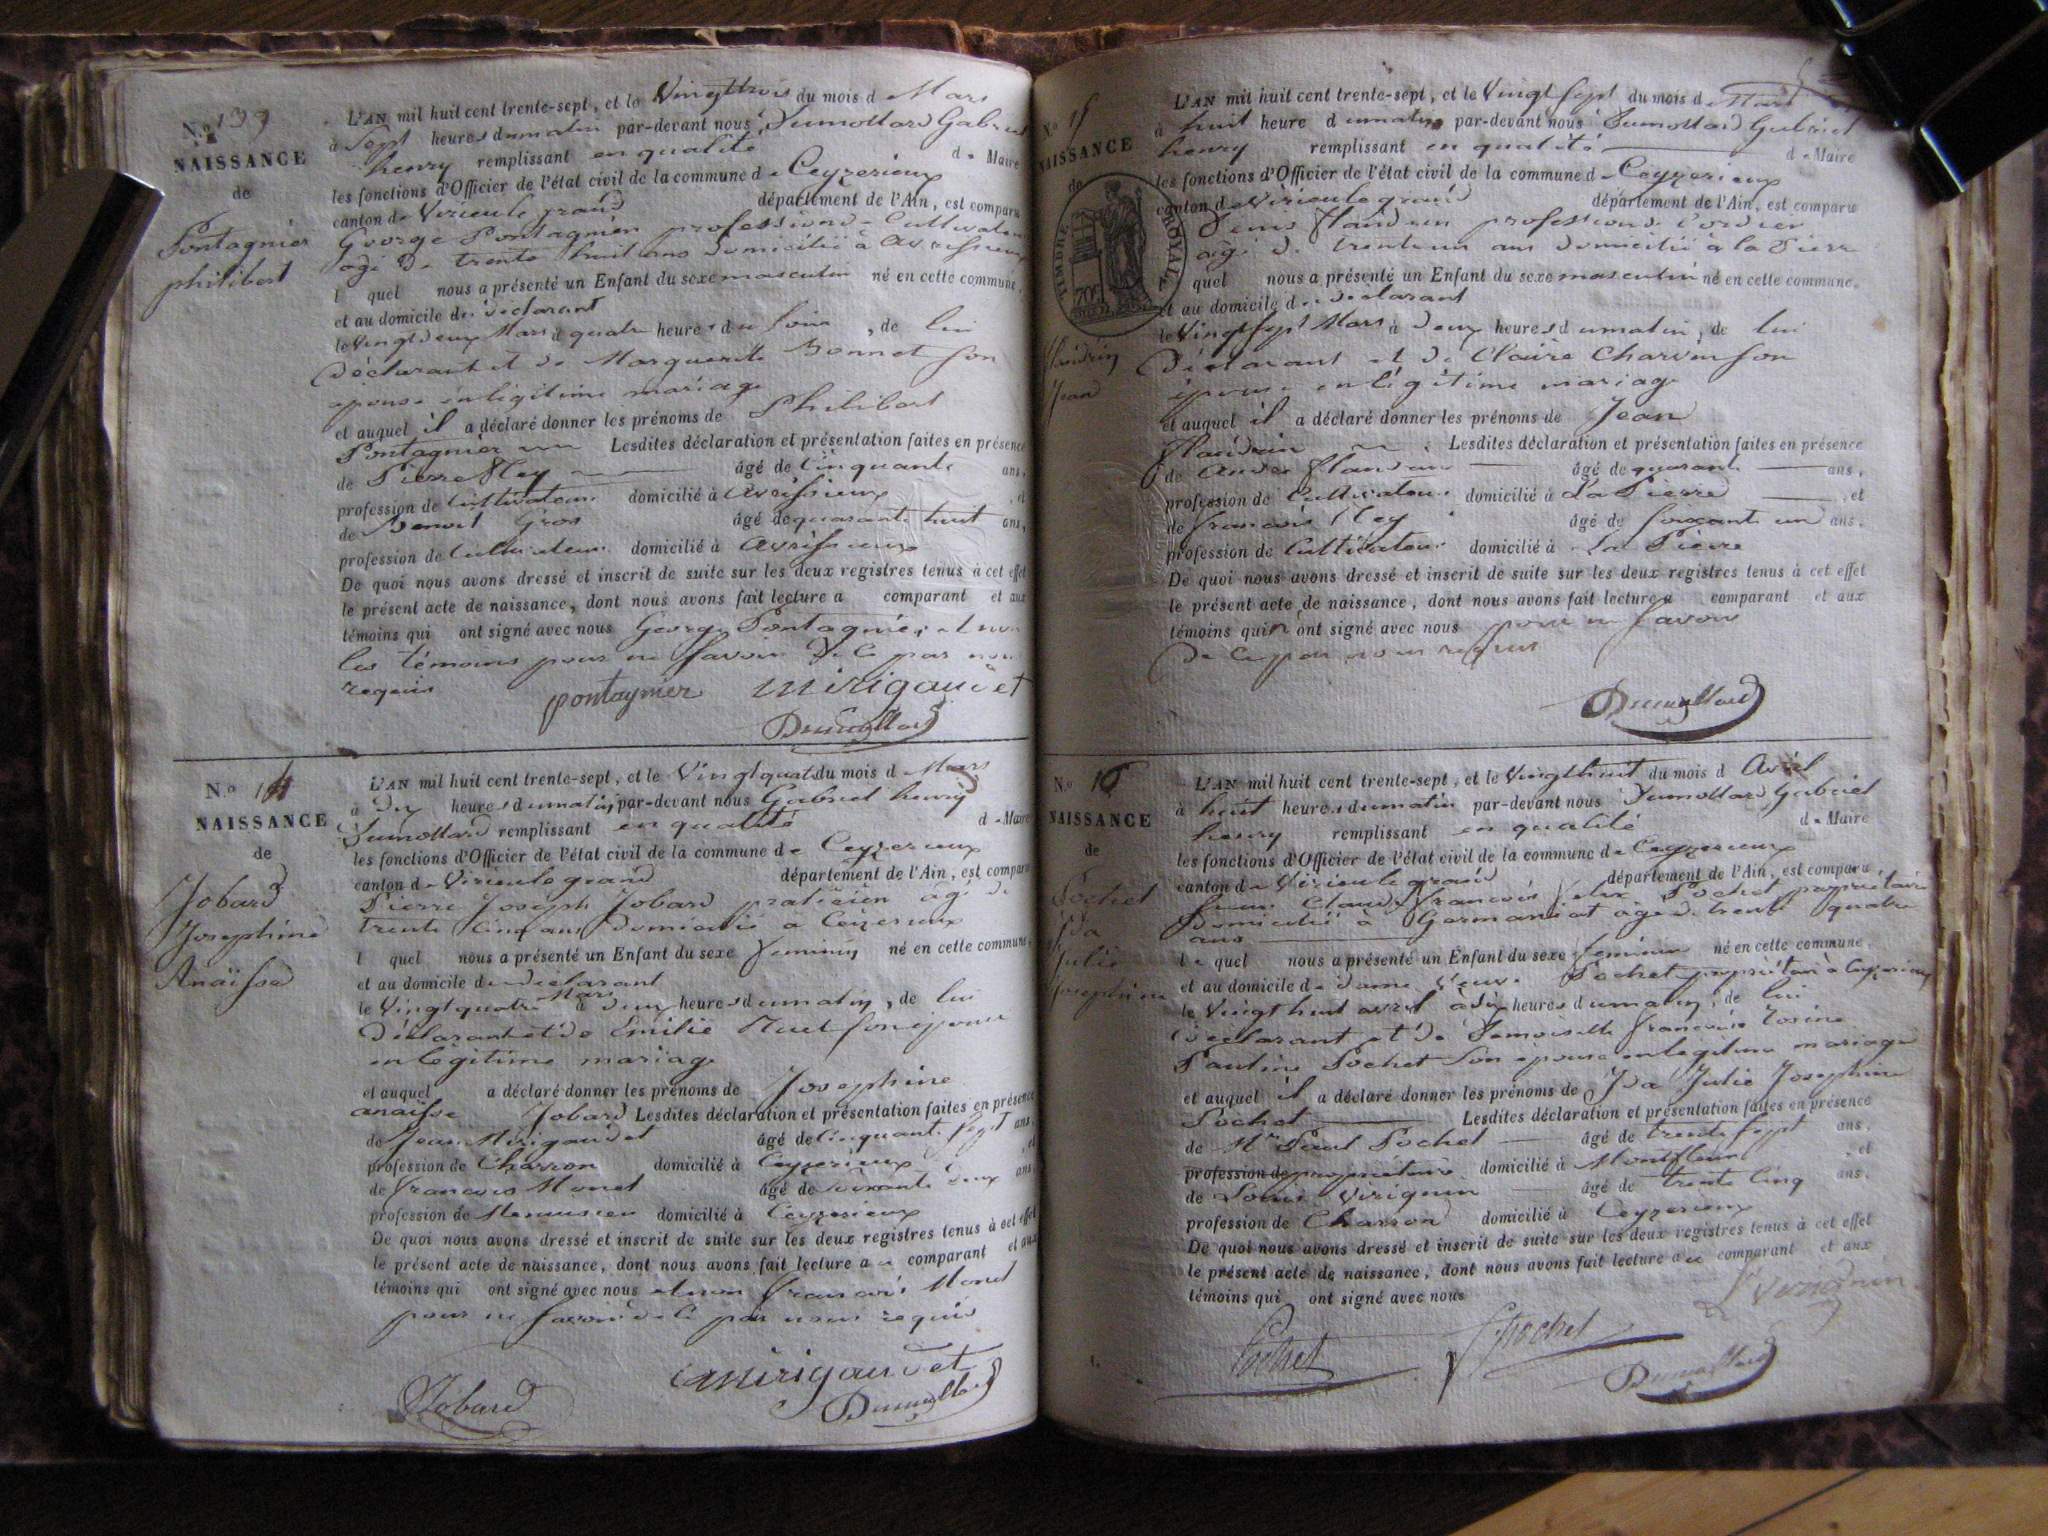 N.o 13
NAISSANCE
de
Pontagnier
philibert
L'AN mil huit cent trente-sept, et le Vingttrois du mois d Mars
à Sept heures dumatin par-devant nous Dumollard Gabriel
henry remplissant en qualité d e Maire
les fonctions d'Officier de l'état civil de la commune d e Ceyzerieux
canton d e Virieu le grand département de l'Ain, est comparu
George Pontagnier profession de Cultivateur
agé de trente huit ans domicilié à avrissieux
l quel nous a présenté un Enfant du sexe masculin né en cette commune,
et au domicile du declarant
le Vingtdeux Mars à quatre heures du Soir, de lui
déclarant et de Marguerite Bonnet Son
epouse en légitime mariage
et auquel il a déclaré donner les prénoms de Philibert
Pontagnier Lesdites déclaration et présentation faites en présence
de Pierre Rey âgé de Cinquante ans,
profession de Cultivateur domicilié à avrissieux, et
de Benoit Gros âgé de quarante huit ans,
profession de Cultivateur domicilié à avrissieux
De quoi nous avons dressé et inscrit de suite sur les deux registres tenus à cet effet
le présent acte de naissance, dont nous avons fait lecture a comparant et aux
témoins qui ont signé avec nous George Pontagnier, et non
les témoins pour ne savoir de ce par nous
requis
pontagnier mirigaudet
Dumollard
N.o 14
NAISSANCE
de
Jobard
Josephine
Anaïsse
L'AN mil huit cent trente-sept, et le Vingtquatre du mois d Mars
à Dix heures dumatin, par-devant nous Gabriel henry
Dumollard remplissant en qualité d e Maire
les fonctions d'Officier de l'état civil de la commune d e Ceyzerieux
canton d e Virieu le grand département de l'Ain, est comparu
Pierre Joseph Jobard praticien agé de
trente Cinq ans domicilié a Ceyzerieux
l quel nous a présenté un Enfant du sexe feminin né en cette commune,
et au domicile du declarant
le Vingtquatre Mars à deux heures dumatin, de lui
déclarant et de Emilie son épouse
en légitime mariage
et auquel a déclaré donner les prénoms de Josephine
anaïsse Jobard Lesdites déclaration et présentation faites en présence
de Jean Mirigaudet âgé de Cinquante Sept ans,
profession de Charron domicilié à Ceyzerieux, et
de francois Monet âgé de Soixante deux ans,
profession de Menuisier domicilié à Ceyzerieux
De quoi nous avons dressé et inscrit de suite sur les deux registres tenus à cet effet
le présent acte de naissance, dont nous avons fait lecture a u comparant et aux
témoins qui ont signé avec nous et non francois Monet
pour ne savoir de ce par nous requis
Jobard mirigaudet
Dumollard
N.o 15
NAISSANCE
de
TIMBRE ROYAL
70c
flandrin
Jean
L'AN mil huit cent trente-sept, et le Vingt Sept du mois d Mars
à huit heure dumatin par-devant nous Dumollard Gabriel
henry remplissant en qualité d e Maire
les fonctions d'Officier de l'état civil de la commune d e Ceyzerieux
canton d e Virieu le grand département de l'Ain, est comparu
Denis flandrin profession de Cordier
agé de trente un ans domicilié à la Pierre
quel nous a présenté un Enfant du sexe masculin né en cette commune,
et au domicile du declarant
le Vingt Sept Mars à deux heures dumatin, de lui
déclarant et de Claire Charvin son
épouse en légitime mariage
et auquel il a déclaré donner les prénoms de Jean
flandrin Lesdites déclaration et présentation faites en présence
de flandrin âgé de quarante ans,
profession de Cultivateur domicilié à La Pierre, et
de francois Rey âgé de Soixante un ans,
profession de Cultivateur domicilié à La Pierre
De quoi nous avons dressé et inscrit de suite sur les deux registres tenus à cet effet
le présent acte de naissance, dont nous avons fait lecture a comparant et aux
témoins qui n ont signé avec nous pour ne savoir
de ce par nous requis
Dumollard
N.o 16
NAISSANCE
de
Pochet
Ida
Julie
Josephine
L'AN mil huit cent trente-sept, et le Vingthuit du mois d Avril
à huit heures dumatin par-devant nous Dumollard Gabriel
henry remplissant en qualité d e Maire
les fonctions d'Officier de l'état civil de la commune d e Ceyzerieux
canton d e Virieu le grand département de l'Ain, est comparu
Claude francois Pochet propriétaire
domicilié à agé de trente quatre
ans
l e quel nous a présenté un Enfant du sexe feminin né en cette commune,
et au domicile de dame Veuve Pochet propriétaire à Ceyzerieux
le Vingthuit avril à Six heures dumatin, de lui
declarant et de Demoiselle françoise
Pauline Pochet Son epouse en legitime mariage
et auquel il a déclaré donner les prénoms de Ida Julie Josephine
Pochet Lesdites déclaration et présentation faites en présence
de Mr Paul Pochet âgé de trente Sept ans,
profession de propriétaire domicilié à Montfleur, et
de Louis Virignin âgé de trente Cinq ans,
profession de Charron domicilié à Ceyzerieux
De quoi nous avons dressé et inscrit de suite sur les deux registres tenus à cet effet
le présent acte de naissance, dont nous avons fait lecture a u comparant et aux
témoins qui ont signé avec nous
Pochet Pochet
Dumollard